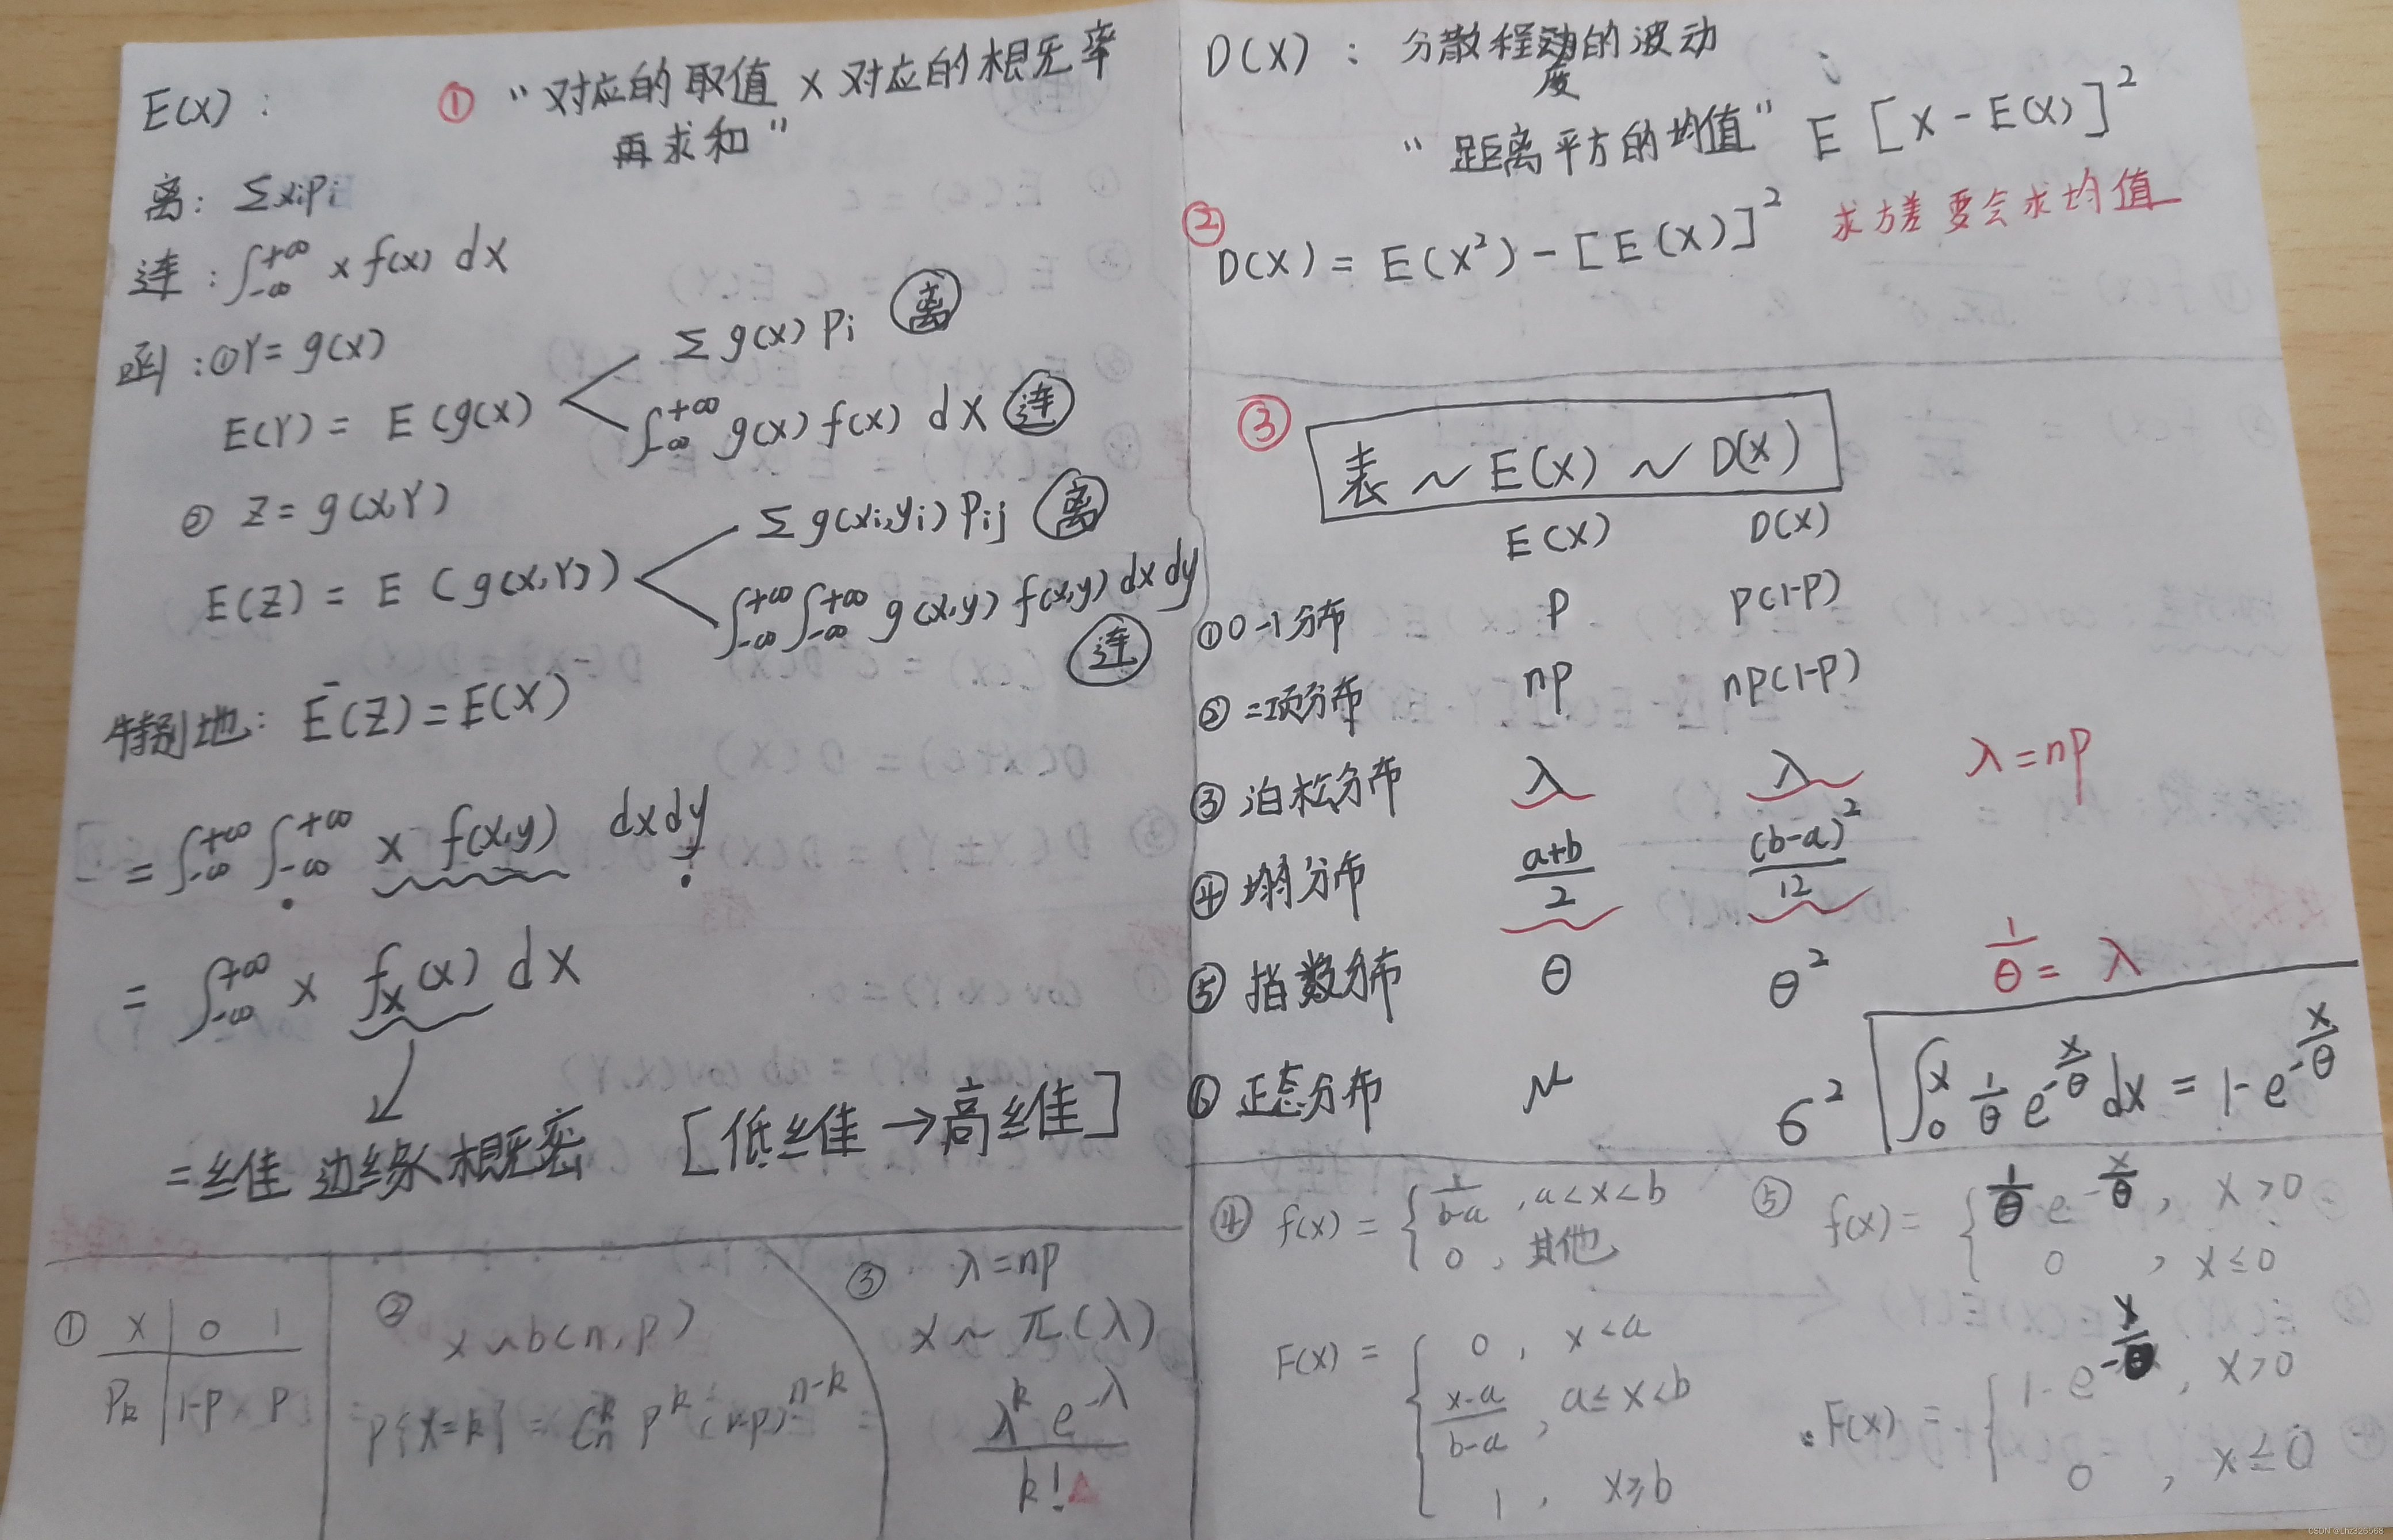 E(X): ① "对应的取值 × 对应的概率
再求和"
离: Σxipi
连: ∫_{-∞}^{+∞} x f(x) dx
函: ①Y= g(x)
E(Y) = E(g(x)
Σ g(x) Pi 离
∫_{-∞}^{+∞} g(x) f(x) dx 连
② Z= g(X,Y)
E(Z) = E (g(X,Y))
Σ g(xi,yi) Pij 离
∫_{-∞}^{+∞}∫_{-∞}^{+∞} g(x,y) f(x,y) dxdy
连
特别地: E(Z)=E(X)
= ∫_{-∞}^{+∞}∫_{-∞}^{+∞} x f(x,y) dxdy
= ∫_{-∞}^{+∞} x f_X(x) dx
二维 边缘概密 [低维→高维]
① X 0 1
Pk 1-P P
② X~b(n,p)
P{X=k} = C_n^k p^k (1-p)^{n-k}
③ λ=np
X~π(λ)
λ^k e^{-λ}
k!
D(X): 分散程度的波动
"距离平方的均值" E[X-E(X)]²
② D(X) = E(X²)-[E(X)]² 求方差要会求均值
③ 表~E(X)~D(X)
E(X) D(X)
①0-1分布 P P(1-P)
②二项分布 np np(1-p)
③泊松分布 λ λ λ=np
④均匀分布 a+b/2 (b-a)²/12
⑤指数分布 θ θ² 1/θ = λ
⑥正态分布 μ σ²
∫_0^x 1/θ e^{-x/θ} dx = 1-e^{-x/θ}
④ f(x) = { 1/b-a , a<x<b
0 , 其他
F(x) = { 0 , x<a
x-a/b-a , a≤x<b
1 , x≥b
⑤ f(x) = { 1/θ e^{-x/θ} , x>0
0 , x≤0
F(x) = { 1-e^{-x/θ} , x>0
0 , x≤0
CSDN @Lhz326568